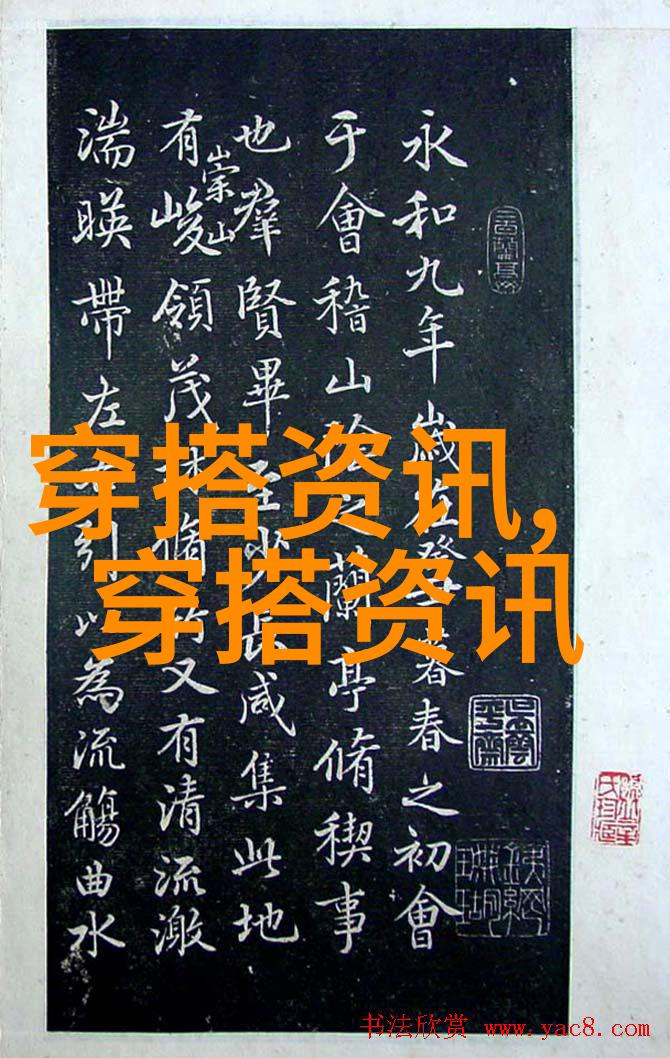 永和九年歲在癸暮春之初會
于會稽山陰之蘭亭脩稧事
也羣賢畢至少長咸集此地
有崇山峻領茂林脩竹又有清流激
湍暎帶左右引以為流觴曲水
穿搭资讯,
穿搭资讯
书法欣赏 www.yac8.com